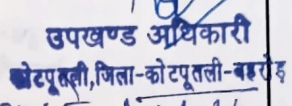 उपखण्ड अधिकारी
कोटपूतली,जिला-कोटपूतली-बहरोड़